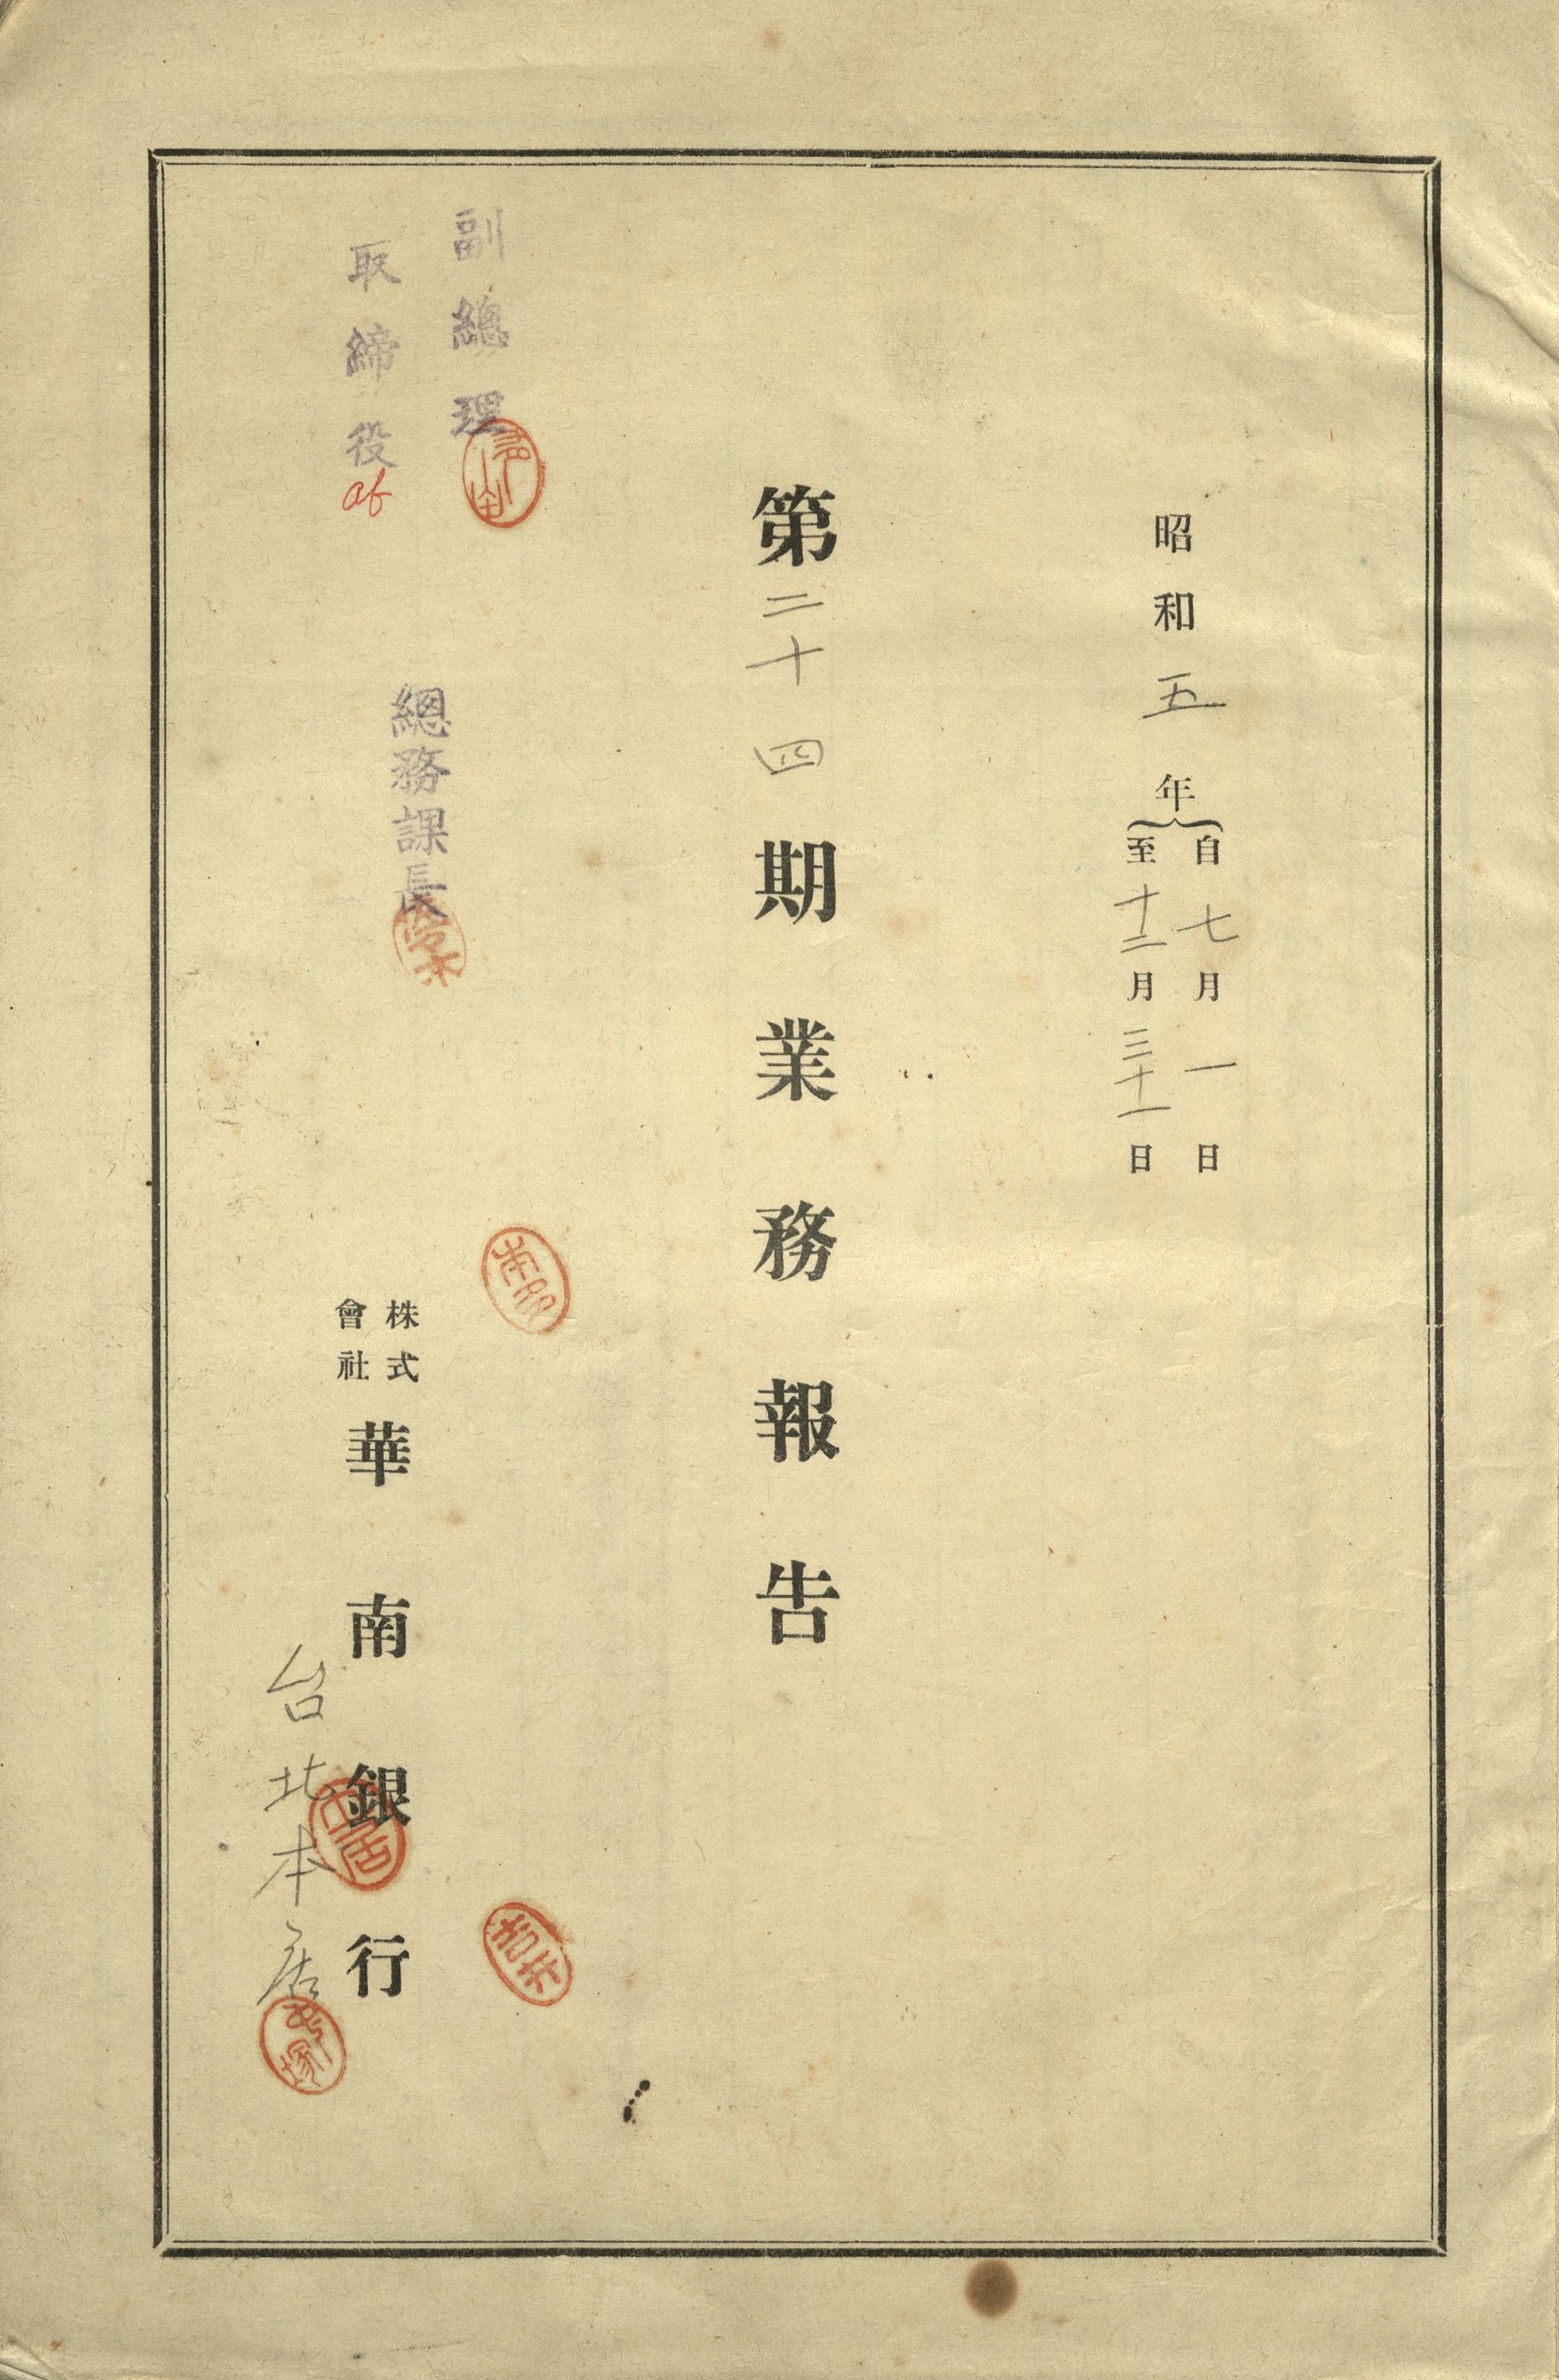 昭和五年
自七月一日
至十二月三十一日
第二十四期業務報告
副總理
取締役
總務課長
株式
會社
華南銀行
台北本店